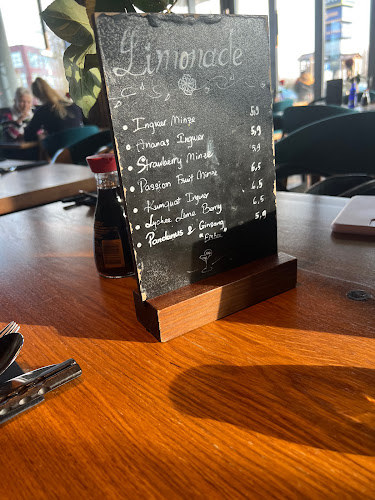 Limonade
• Ingwer Minze 5,9
• Ananas Ingwer 5,9
• Strawberry Minze 5,9
• Passion Fruit Minze 6,5
• Kumquat Ingwer 6,5
• Lychee Lime Berry 6,5
• Pandanus & Ginseng 5,9